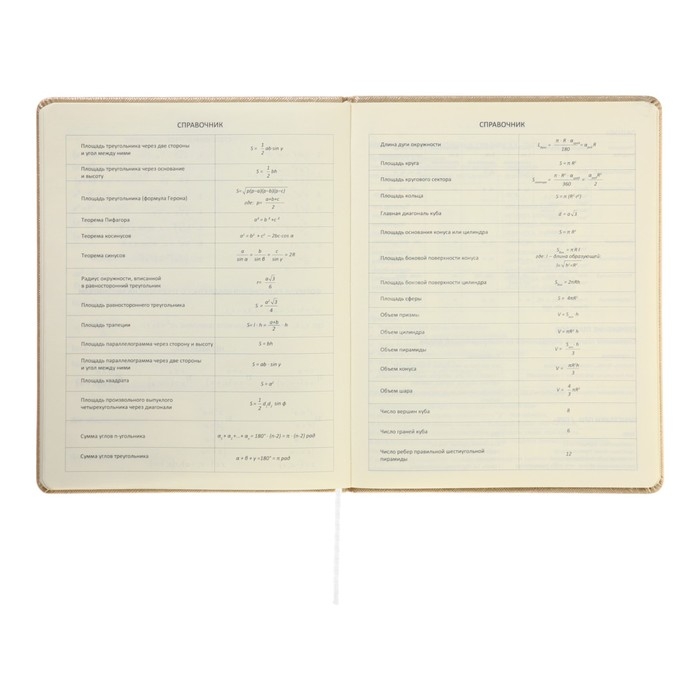 СПРАВОЧНИК
Площадь треугольника через две стороны
и угол между ними
S = 1/2 ab·sin γ
Площадь треугольника через основание
и высоту
S = 1/2 bh
Площадь треугольника (формула Герона)
S=√p(p-a)(p-b)(p-c)
где: p= a+b+c/2
Теорема Пифагора
a² = b² + c²
Теорема косинусов
a² = b² + c² - 2bc cos α
Теорема синусов
a/sin α = b/sin β = c/sin γ = 2R
Радиус окружности, вписанной
в равносторонний треугольник
r= a√3/6
Площадь равностороннего треугольника
S = a²√3/4
Площадь трапеции
S= l · h = a+b/2 · h
Площадь параллелограмма через сторону и высоту
S = bh
Площадь параллелограмма через две стороны
и угол между ними
S = ab · sin γ
Площадь квадрата
S = a²
Площадь произвольного выпуклого
четырехугольника через диагонали
S = 1/2 d₁d₂ sin φ
Сумма углов n угольника
α₁ + α₂ +...+ αₙ = 180° · (n-2) = π · (n-2) рад
Сумма углов треугольника
α + β + γ =180° = π рад
СПРАВОЧНИК
Длина дуги окружности
π · R · α/180 = α R
Площадь круга
S = π R²
Площадь кругового сектора
π · R² · α/360 = α R²/2
Площадь кольца
Главная диагональ куба
d = a√3
Площадь основания конуса или цилиндра
S = π R²
Площадь боковой поверхности конуса
S = πRl
где: l — длина образующей,
Площадь боковой поверхности цилиндра
S = 2πRh
Площадь сферы
S = 4πR²
Объем призмы
V = S h
Объем цилиндра
V = πR² h
Объем пирамиды
V = S h/3
Объем конуса
V = πR²h/3
Объем шара
V = 4/3 πR³
Число вершин куба
8
Число граней куба
6
Число ребер правильной шестиугольной
пирамиды
12